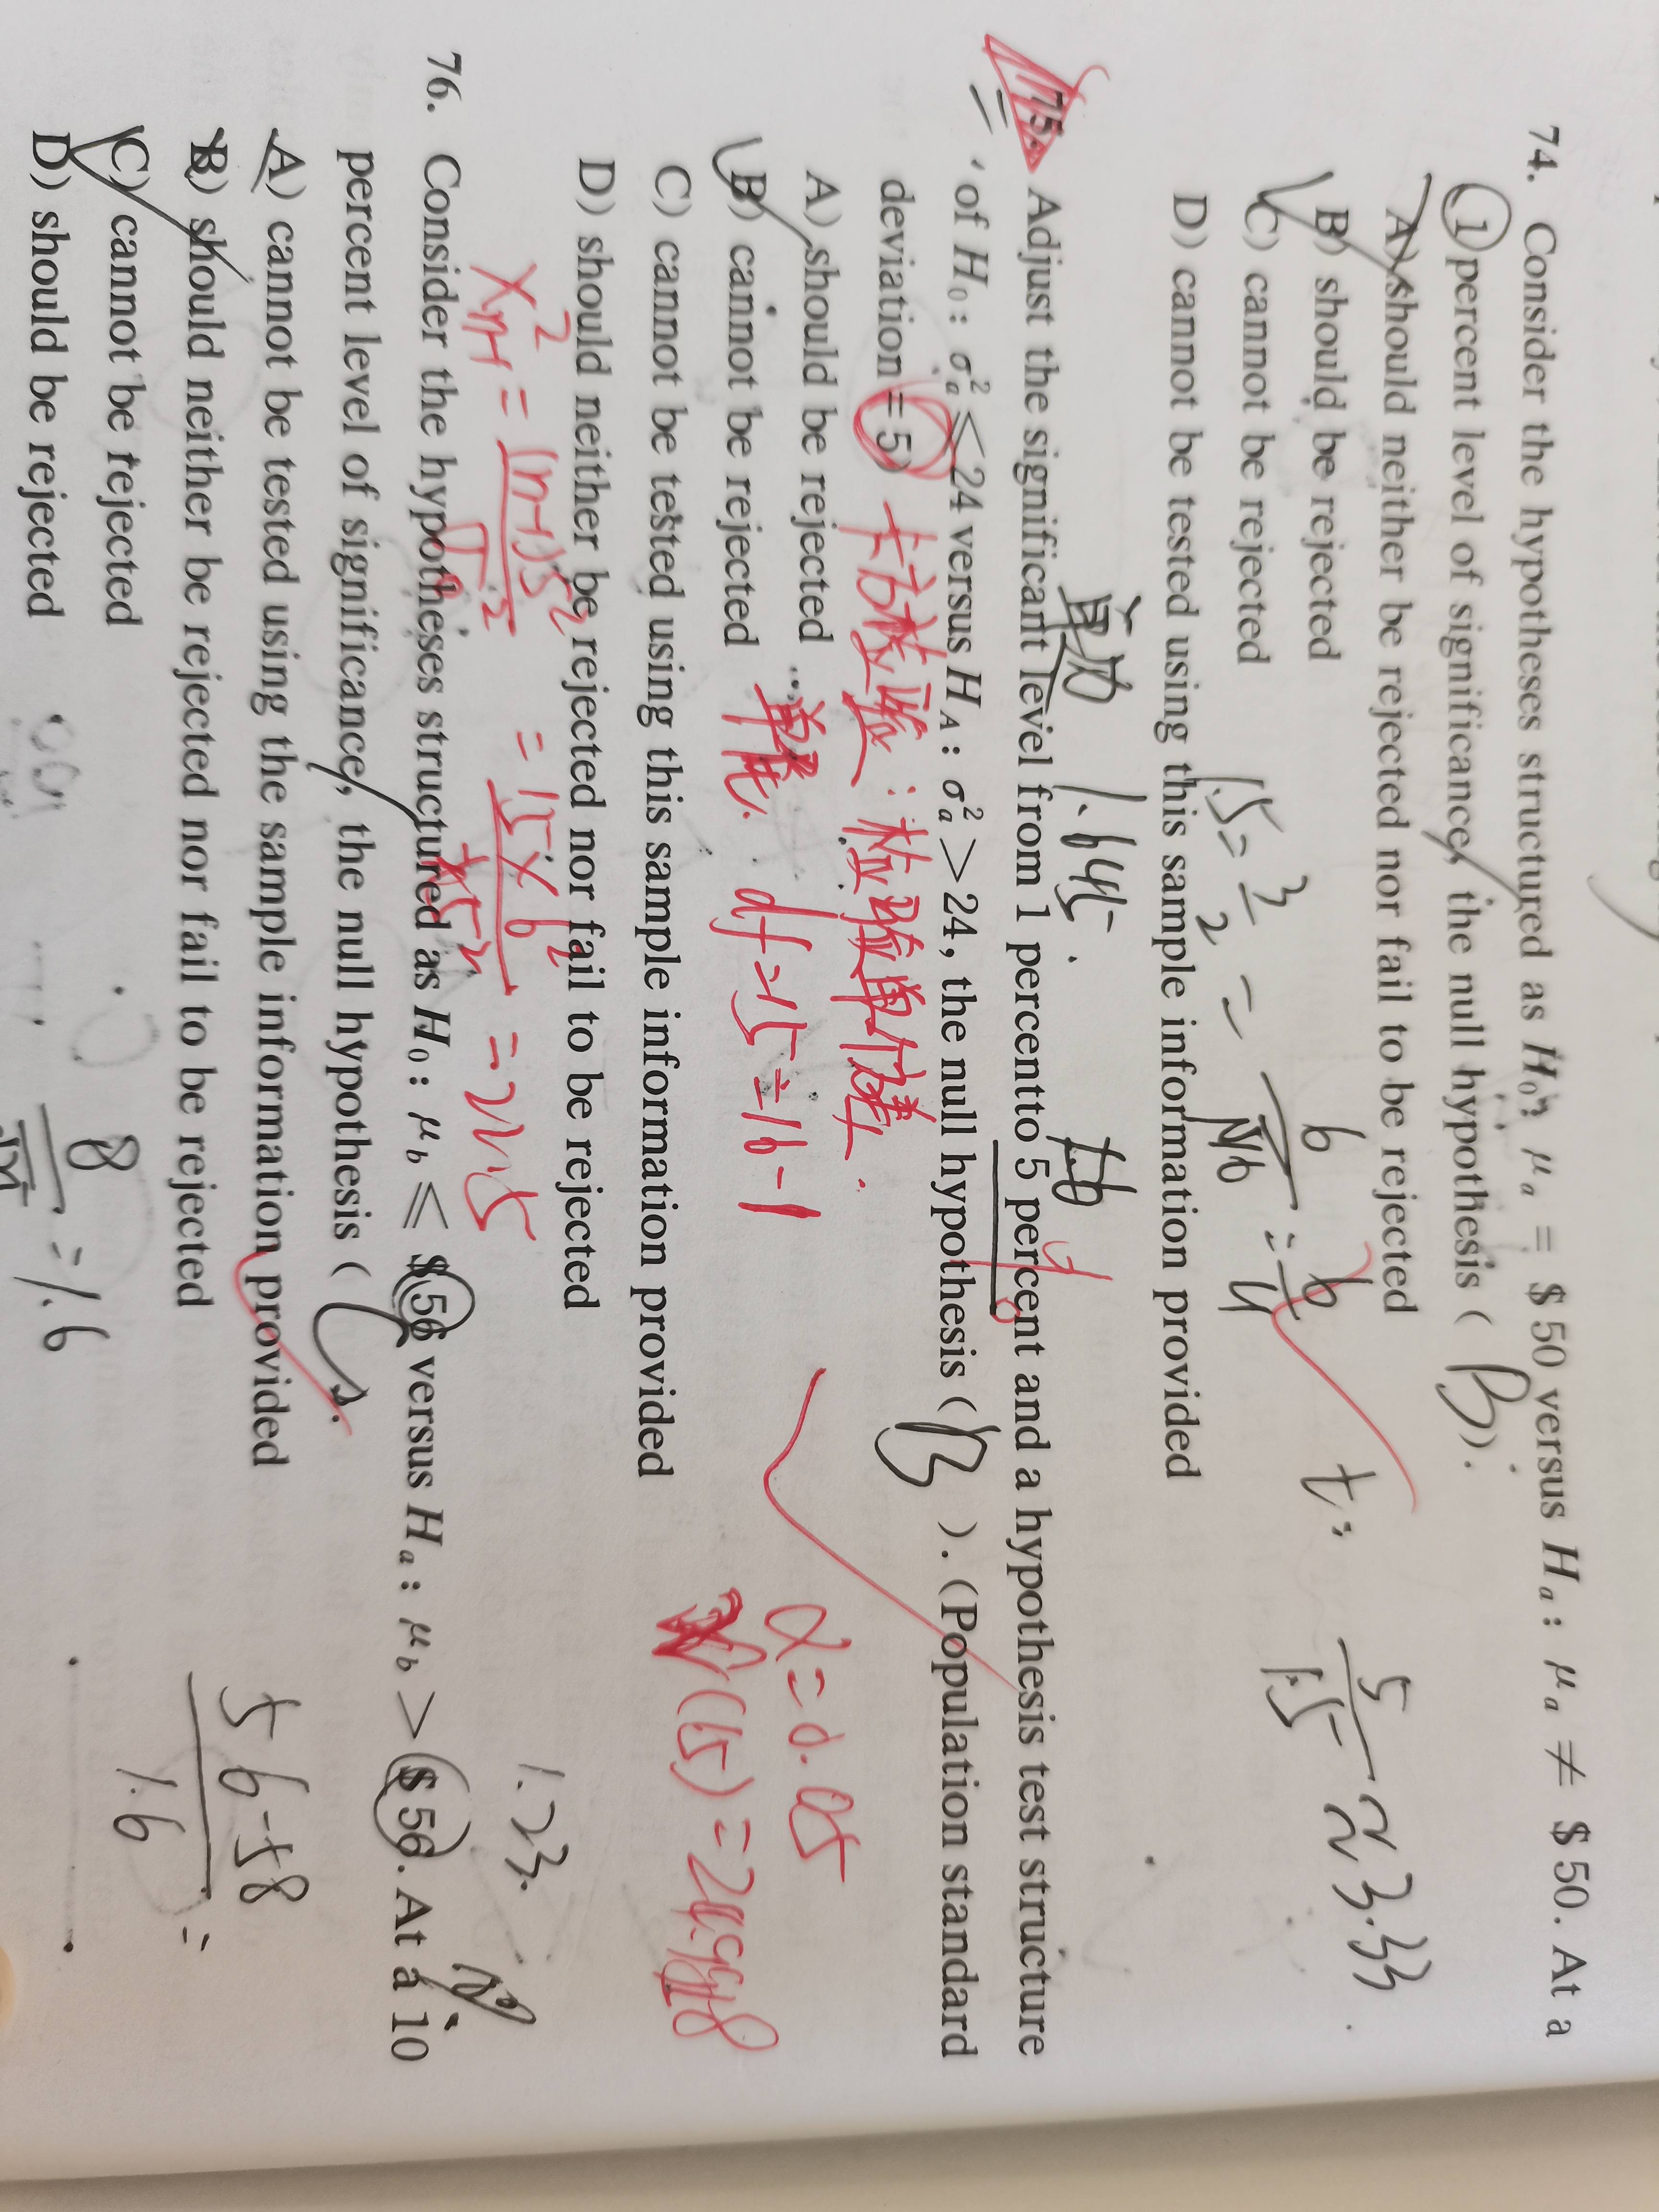 74. Consider the hypotheses structured as H₀: μₐ = $ 50 versus Hₐ: μₐ ≠ $ 50. At a
1 percent level of significance, the null hypothesis ( B ).
A) should neither be rejected nor fail to be rejected
B) should be rejected
C) cannot be rejected
D) cannot be tested using this sample information provided
1.5 = 3/2 = 6/√16 = 6/4
t = 5/1.5 ≈ 3.33
1.645
75. Adjust the significant level from 1 percentto 5 percent and a hypothesis test structure
of H₀: σ²ₐ ≤ 24 versus H_A: σ²ₐ > 24, the null hypothesis ( B ). (Population standard
deviation = 5)
卡方检验：检验单个总体
A) should be rejected
B) cannot be rejected
单尾. df = 15 = 16 - 1
α = 0.05
(15) = 24.998
C) cannot be tested using this sample information provided
D) should neither be rejected nor fail to be rejected
X²n-1 = (n-1)S²/σ² = 15×6²/5² = 21.5
1.23.
76. Consider the hypotheses structured as H₀: μ_b ≤ $ 56 versus Hₐ: μ_b > $ 56. At a 10
percent level of significance, the null hypothesis ( C ).
A) cannot be tested using the sample information provided
B) should neither be rejected nor fail to be rejected
C) cannot be rejected
D) should be rejected
56-58/1.6 =
8/√25 = 1.6